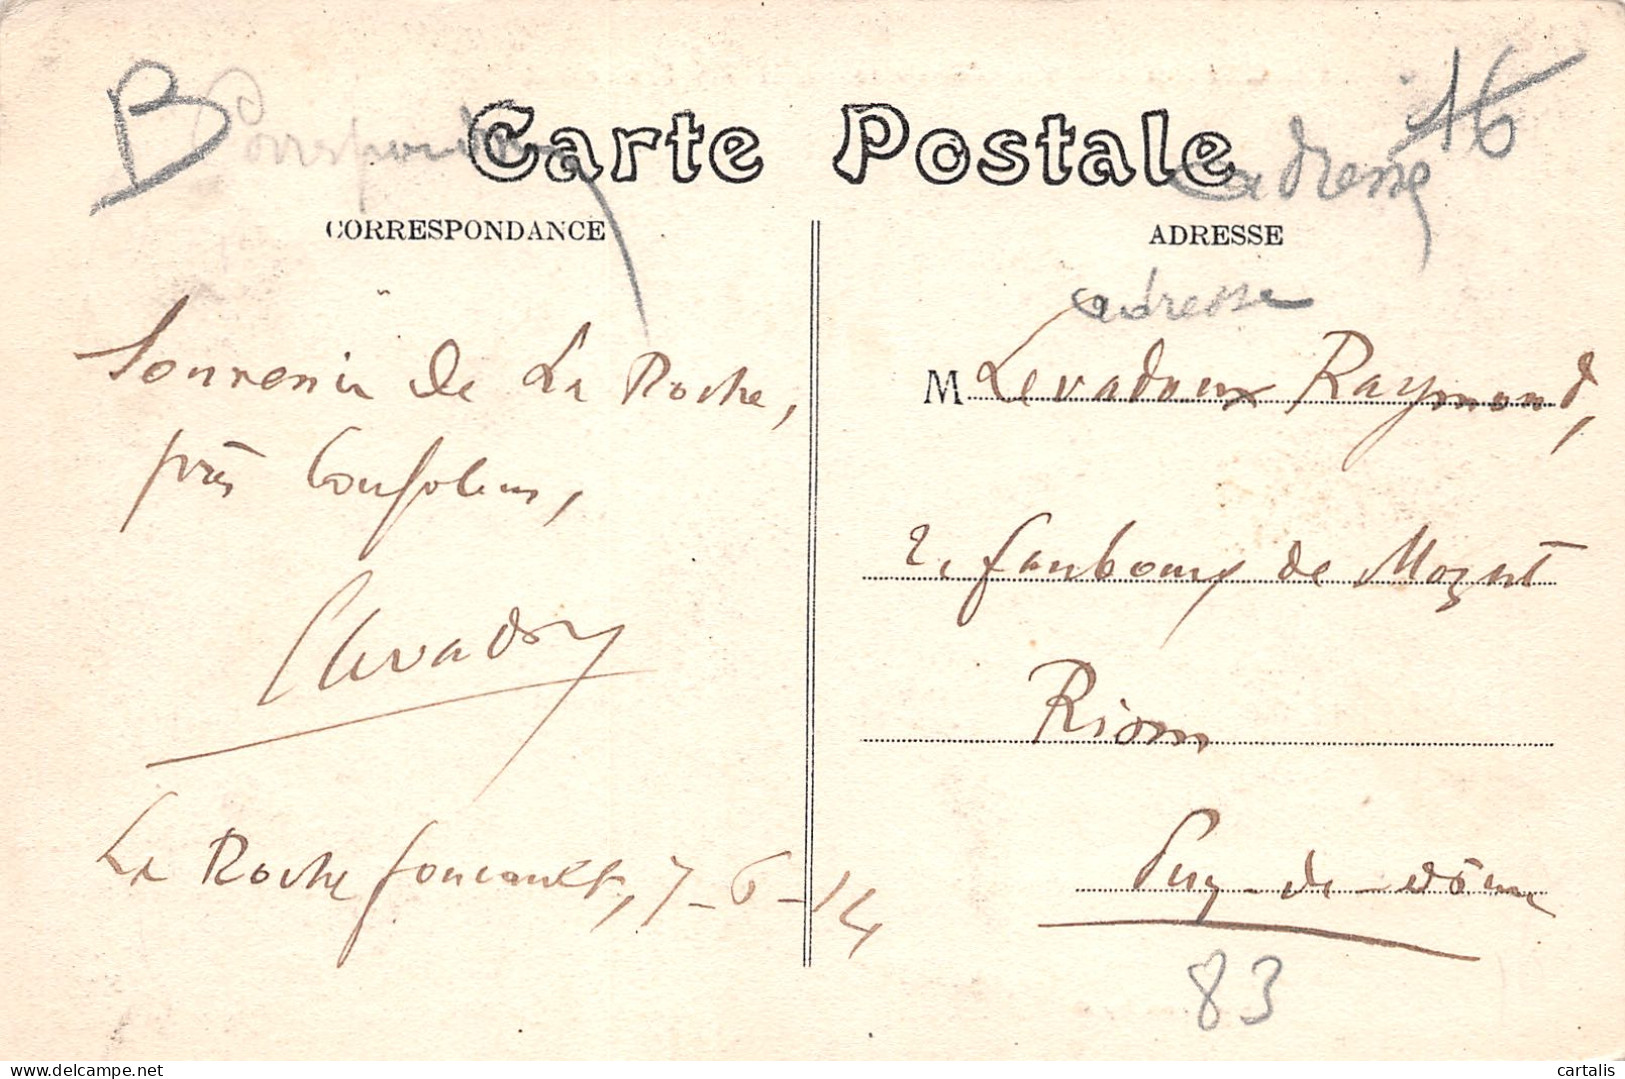 B
Correspondance
16
Carte Postale
adresse
CORRESPONDANCE
ADRESSE
adresse
Souvenir de La Roche,
près Confolens,
M Levadoux Raymond,
2, faubourg de Mozat
Riom
Puy-de-Dôme
La Rochefoucault, 7-6-14
83
delcampe.net
cartalis